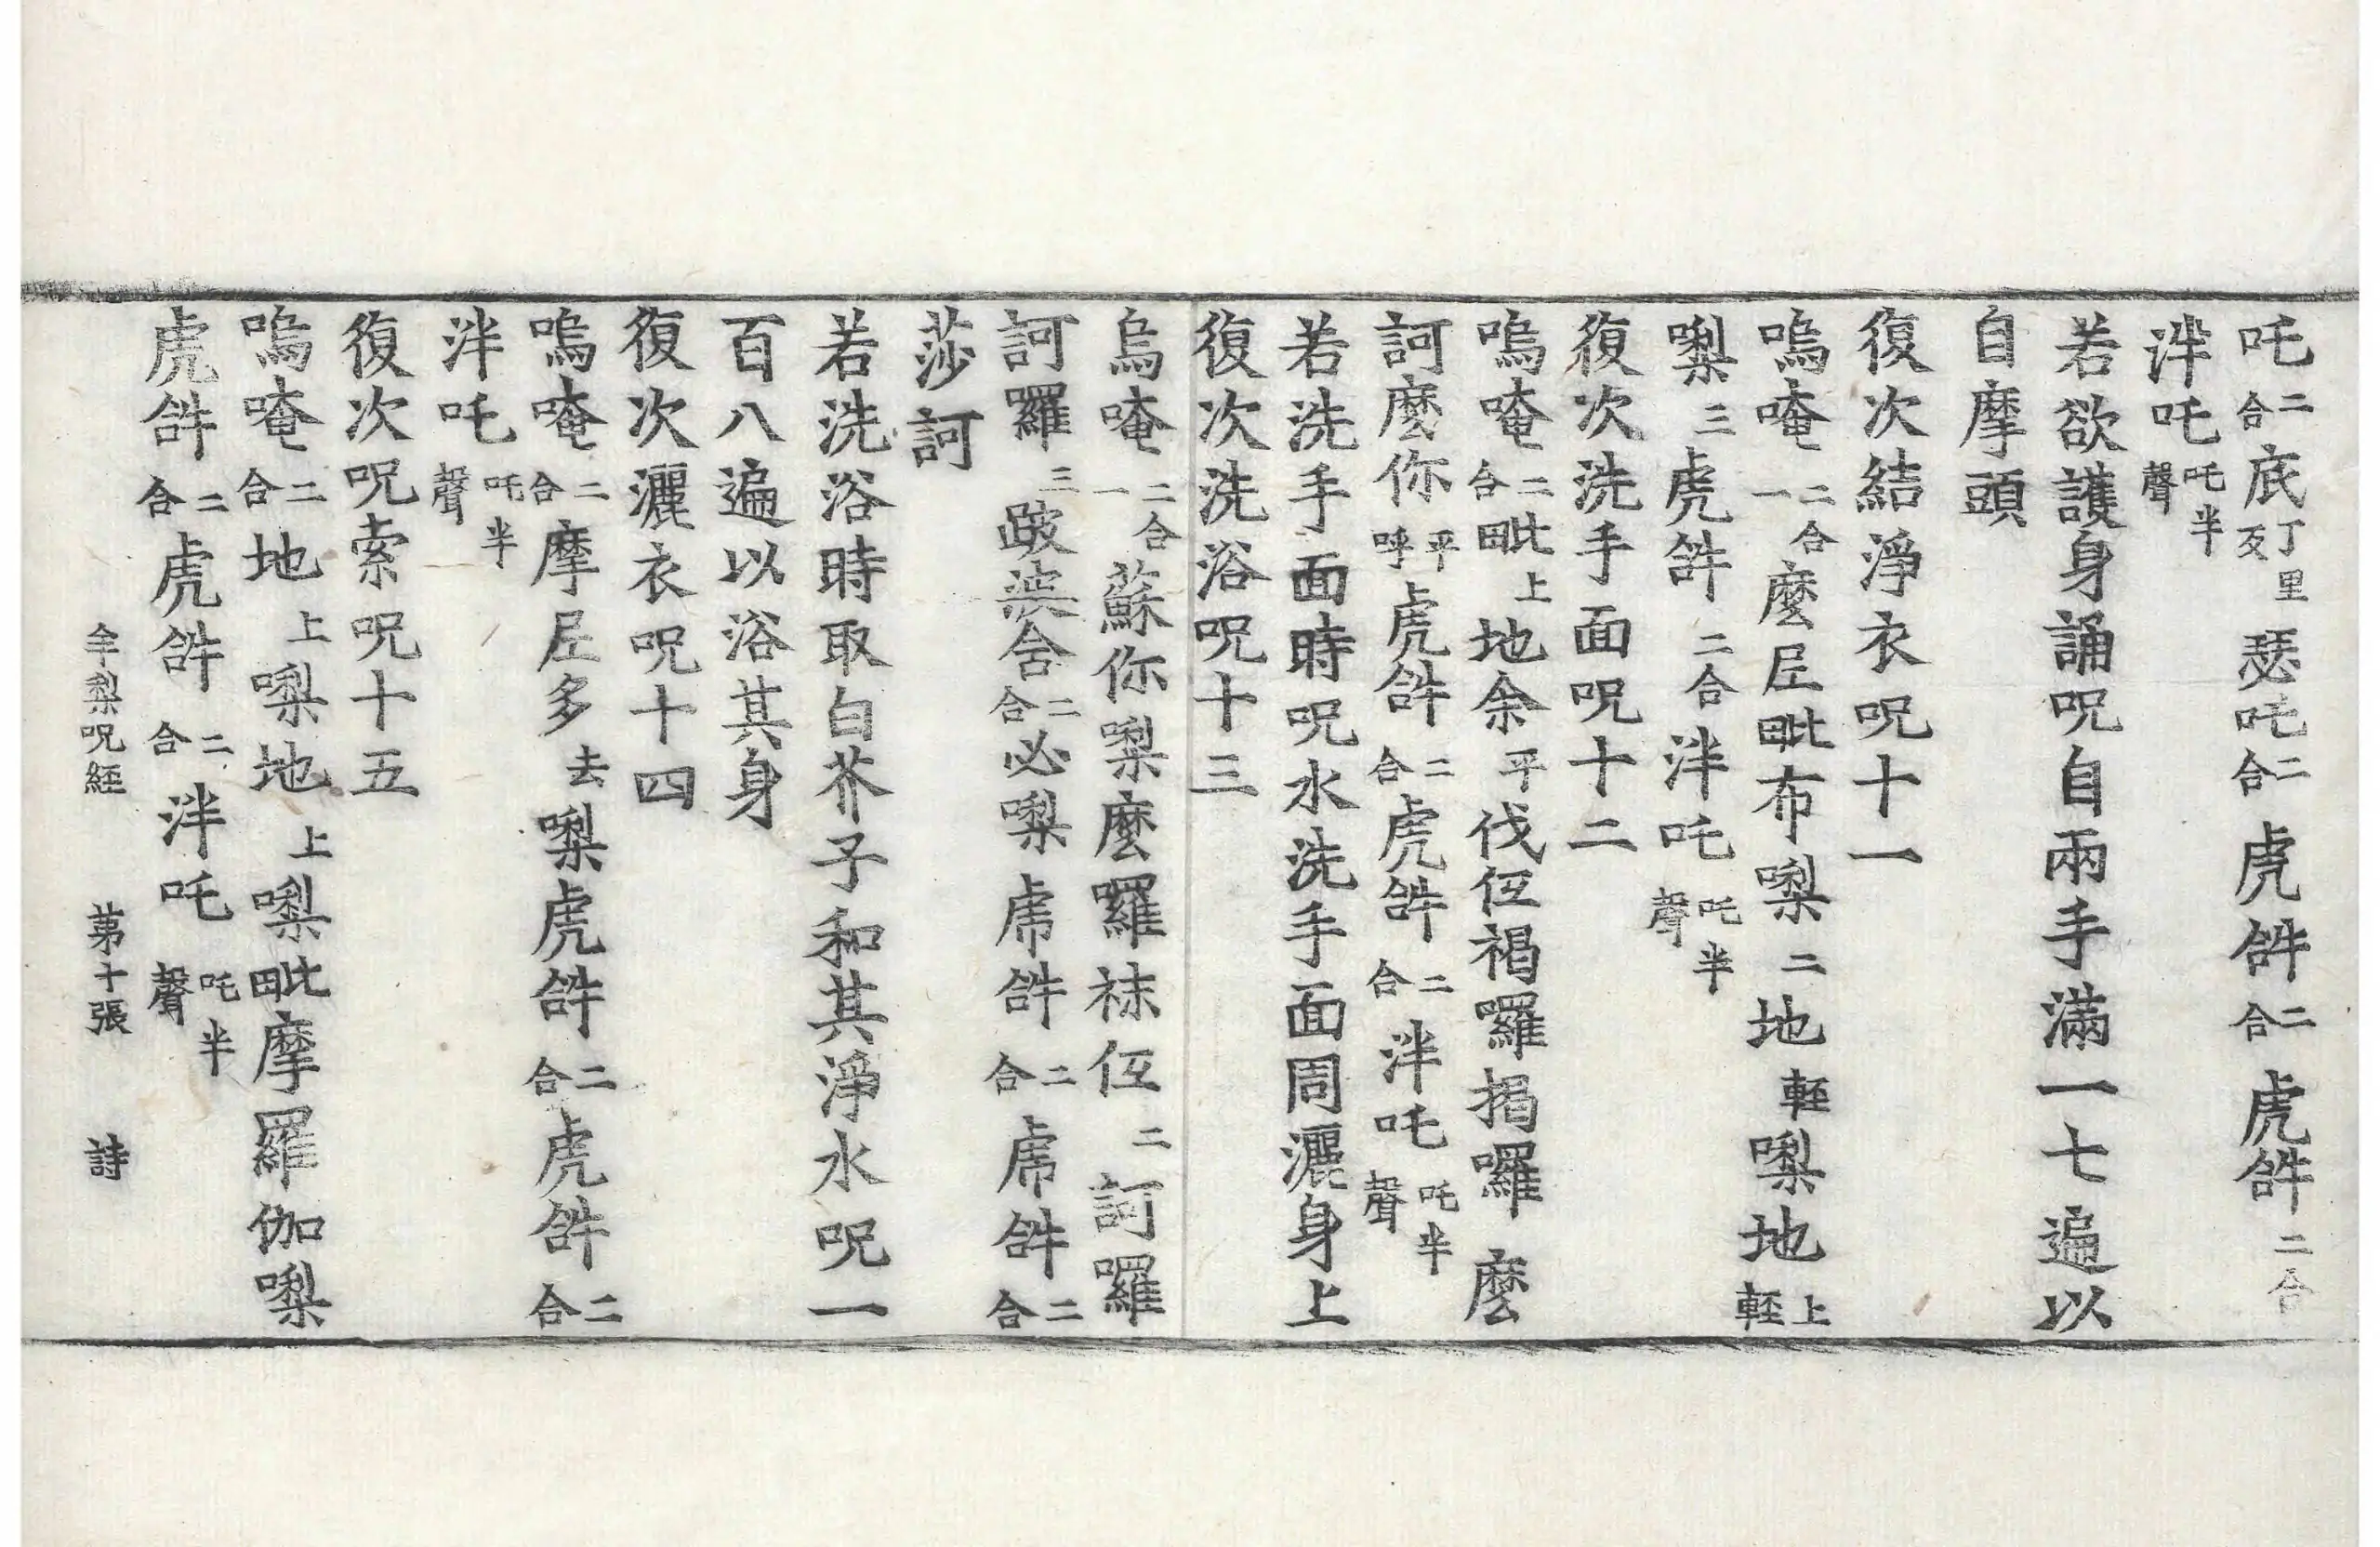 吒二合底丁里反瑟吒二合虎𤙖二合虎𤙖二合
泮吒吒半聲
若欲護身誦呪自兩手滿一七遍以
自摩頭
復次結淨衣呪十一
嗚唵二合一麼𡰱毗布㗚二地輕㗚地上輕
㗚三虎𤙖二合泮吒吒半聲
復次洗手面呪十二
嗚唵二合毗上地余平伐仾褐囉揭囉麼
訶麼你平呼虎𤙖二合虎𤙖二合泮吒吒半聲
若洗手面時呪水洗手面周灑身上
復次洗浴呪十三
烏唵二合一蘇你㗚麼囉袜仾二訶囉
訶囉三跛裟舍二合必㗚虎𤙖二合虎𤙖二合
莎訶
若洗浴時取白芥子和其淨水呪一
百八遍以浴其身
復次灑衣呪十四
嗚唵二合摩𡰱多去㗚虎𤙖二合虎𤙖二合
泮吒吒半聲
復次呪索呪十五
嗚唵二合地上㗚地上㗚毗摩羅伽㗚
虎𤙖二合虎𤙖二合泮吒吒半聲
牟梨呪経 苐十張 詩